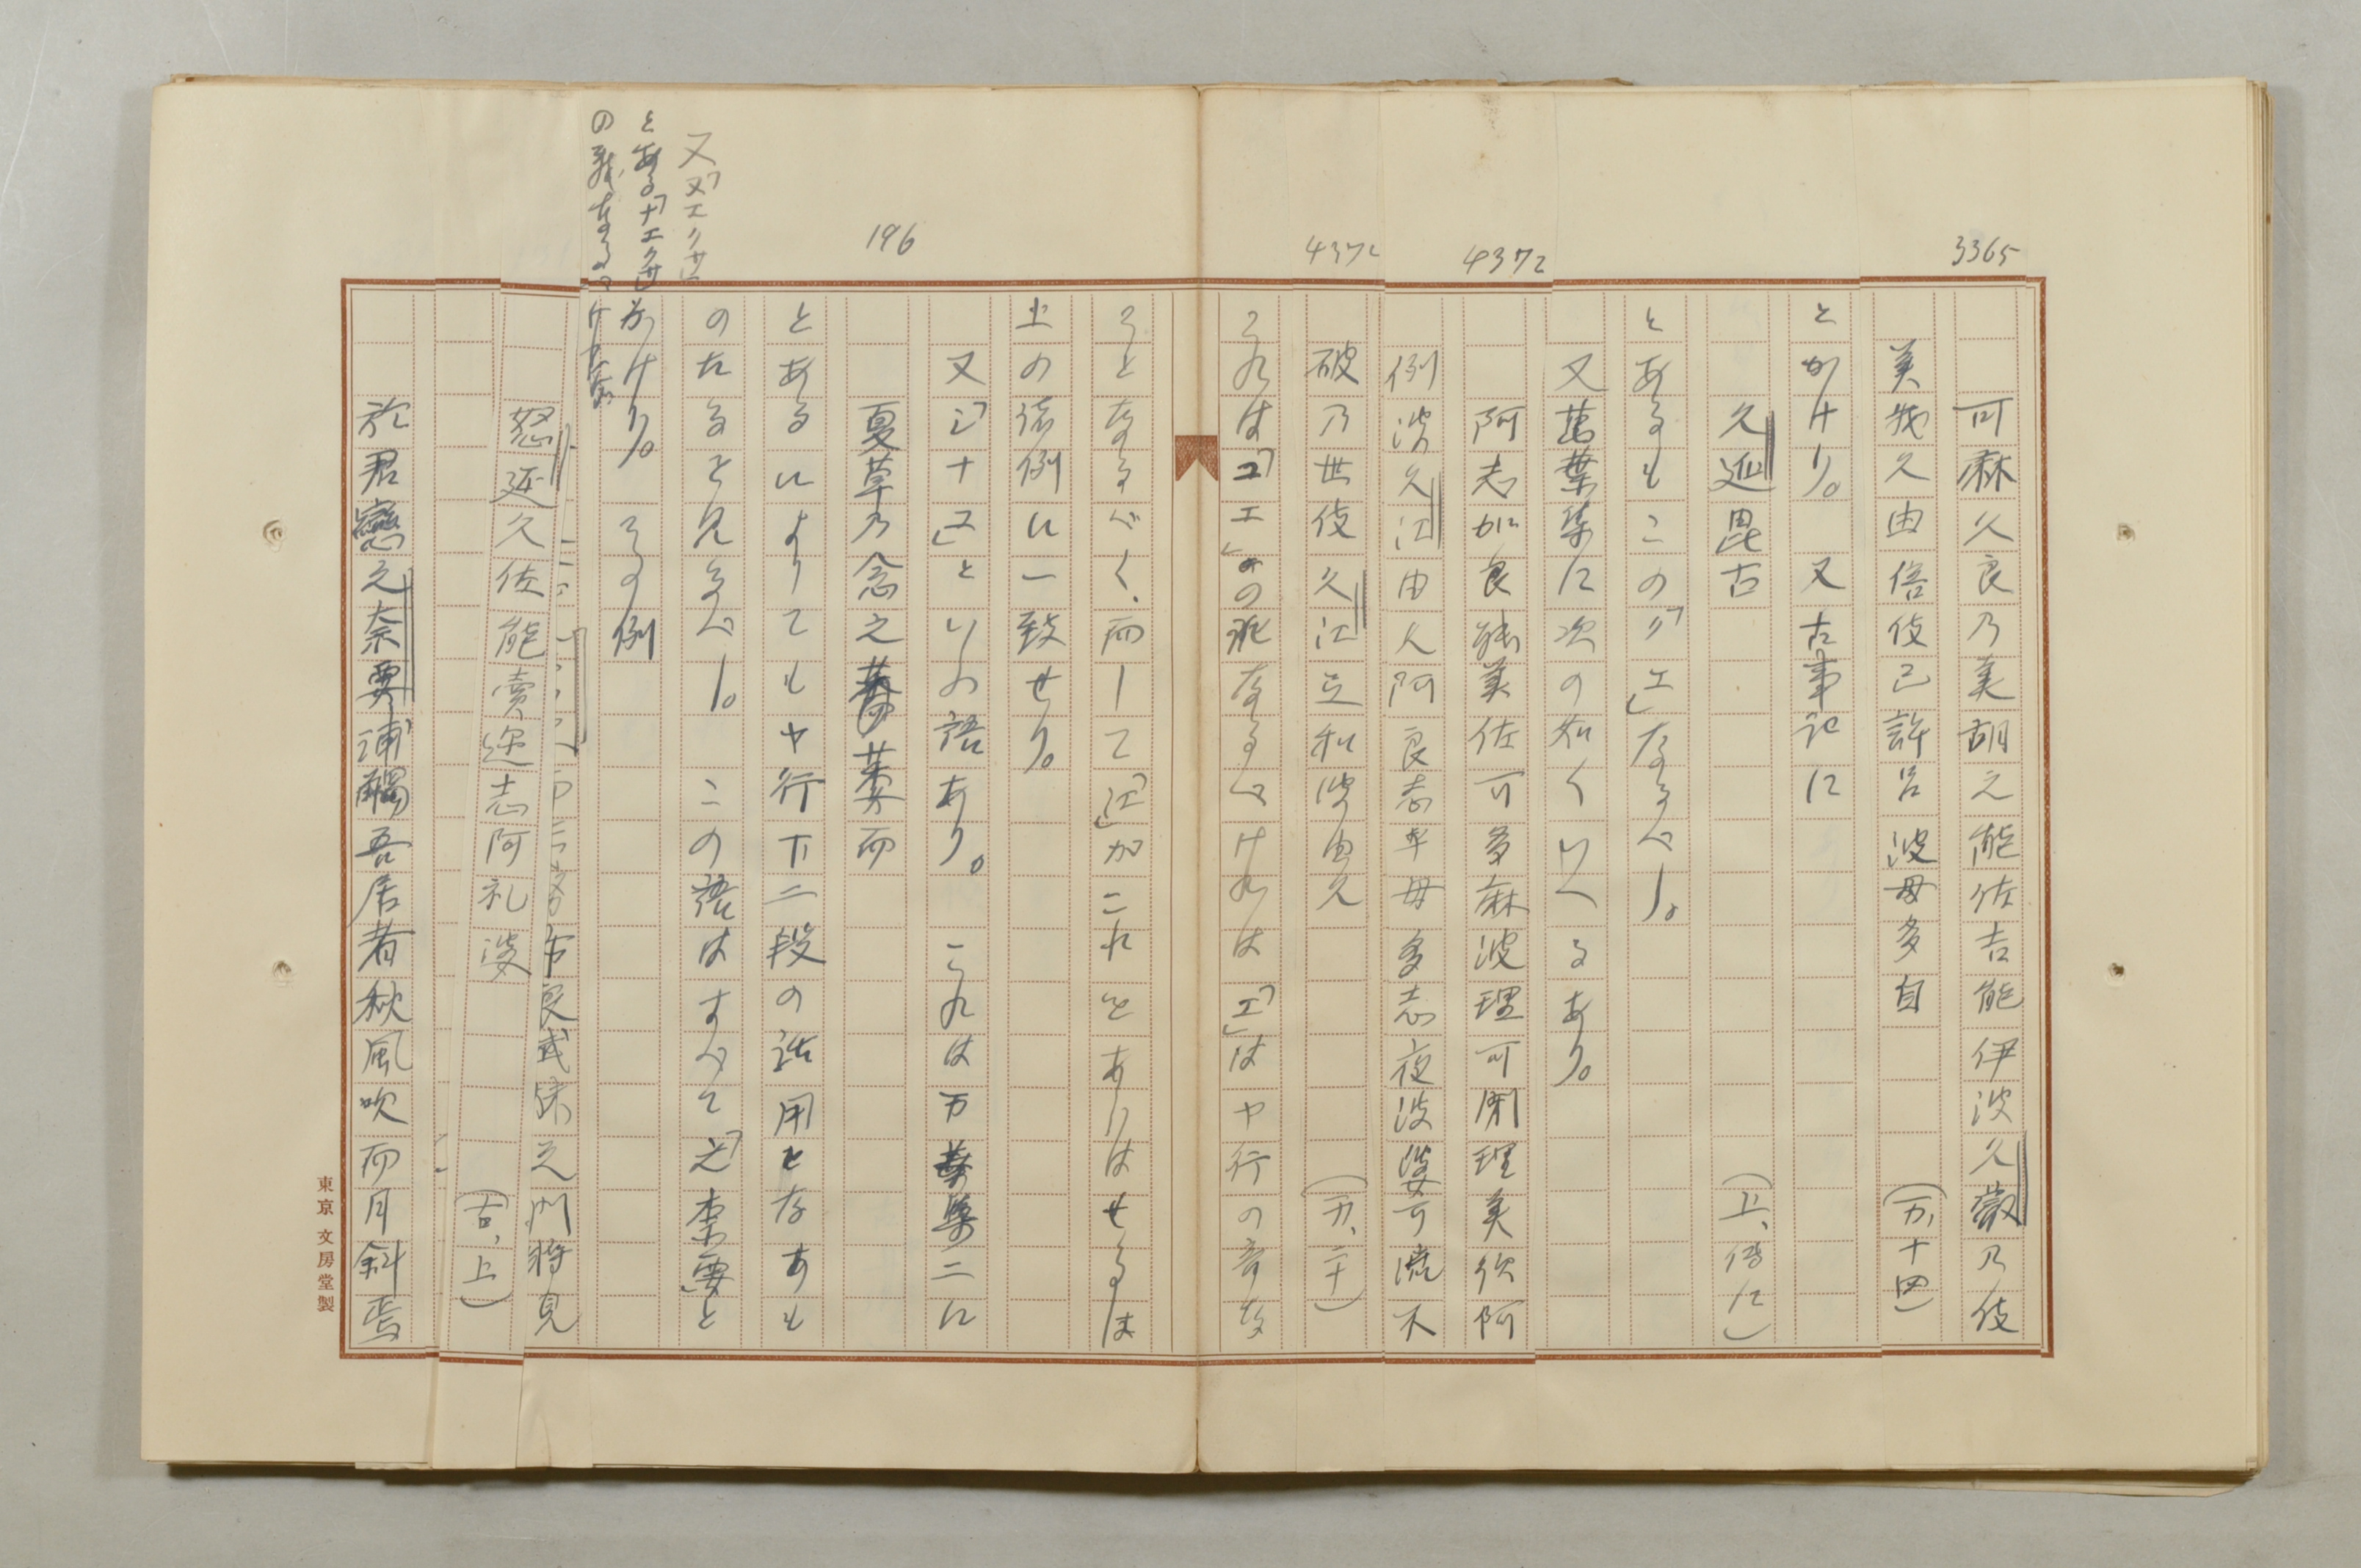 3365
可麻久良乃美胡之能佐吉能伊波久叡乃伎
美我久由倍伎己許呂波母多自 (万、十四)
とかけり。又古事記に
久延毘古 (上、傳に)
とあるもこの「エ」なるべし。
又萬葉集に次の如くいへるあり。
4372
阿志加良能美佐可多麻波理可閇理美須阿
例波久江由久阿良志乎母多志夜波婆可流不
4372
破乃世伎久江弖和波由久 (万、二十)
これは「エ」はヤ行の音な
ることなるべく、而して「江」がこれとあらはせるは
上の諸例に一致せり。
又「シナエ」といふ語あり。これは万葉集二に
196
夏草乃念之萎而
とあるによりてもヤ行下二段の活用となあも
のたると見るべし。この語はすべて「之奈要」と
かけり。その例
又「ヌエクサ」
とある「ナエクサ」
良武妹之門將見
怒延久佐能賣迩志阿礼婆 (古、上)
於君戀之奈要浦觸吾居者秋風吹而月斜焉
東京 文房堂製